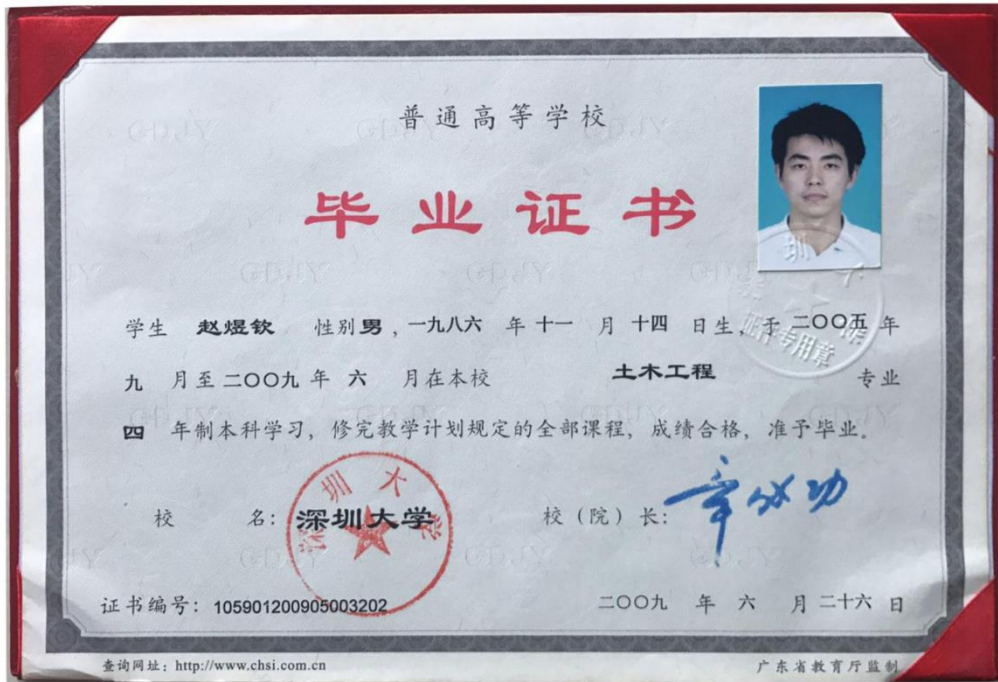 普通高等学校
毕业证书
学生 赵煜钦 性别 男，一九八六 年 十一 月 十四 日生，于 二〇〇五 年
九 月至 二〇〇九 年 六 月在本校 土木工程 专业
四 年制本科学习，修完教学计划规定的全部课程，成绩合格，准予毕业。
校 名：深圳大学 校（院）长：章必功
深圳大学
证件专用章
证书编号：105901200905003202 二〇〇九 年 六 月 二十六 日
查询网址：http://www.chsi.com.cn 广东省教育厅监制